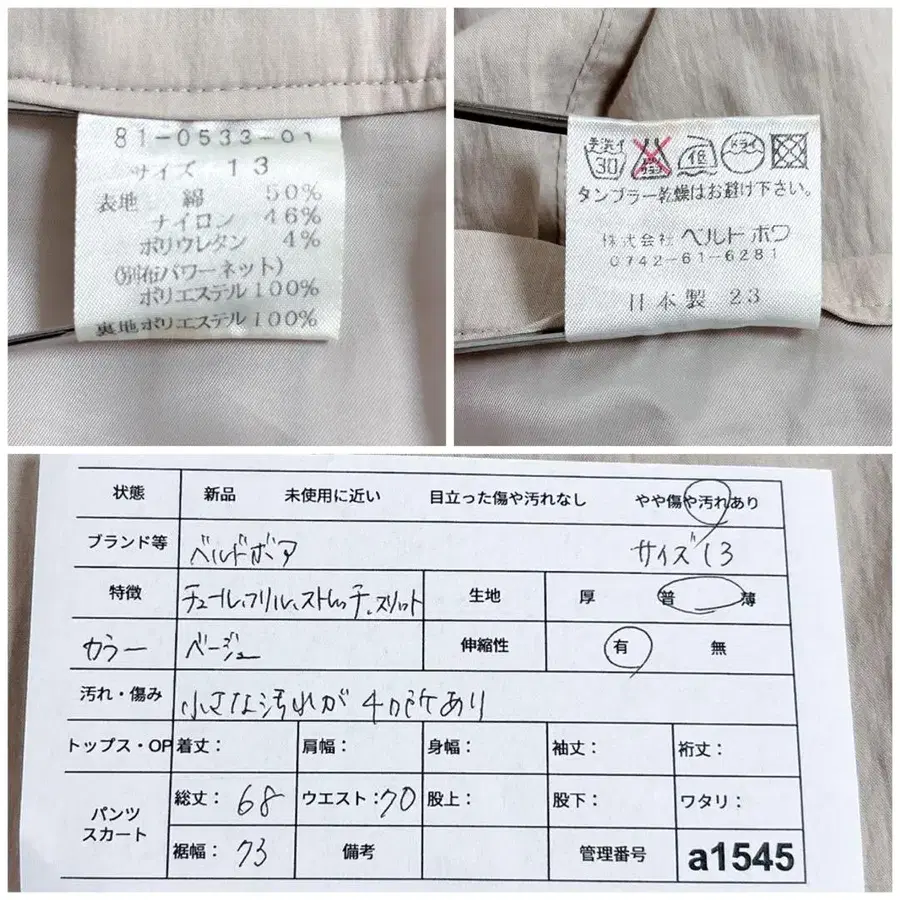 81-0533-01
サイズ 13
表地 綿 50%
ナイロン 46%
ポリウレタン 4%
(別布パワーネット)
ポリエステル100%
裏地ポリエステル100%
手洗イ 30 低 ドライ
タンブラー乾燥はお避け下さい。
株式会社 ベルドボワ
0742-61-6281
日本製 23
状態 新品 未使用に近い 目立った傷や汚れなし やや傷や汚れあり
ブランド等 ベルドボア サイズ13
特徴 チュール、フリル、ストレッチ、スリット 生地 厚 普 薄
カラー ベージュ 伸縮性 有 無
汚れ・傷み 小さな汚れが4か所あり
トップス・OP 着丈: 肩幅: 身幅: 袖丈: 裄丈:
パンツ スカート 総丈: 68 ウエスト: 70 股上: 股下: ワタリ:
裾幅: 73 備考 管理番号 a1545